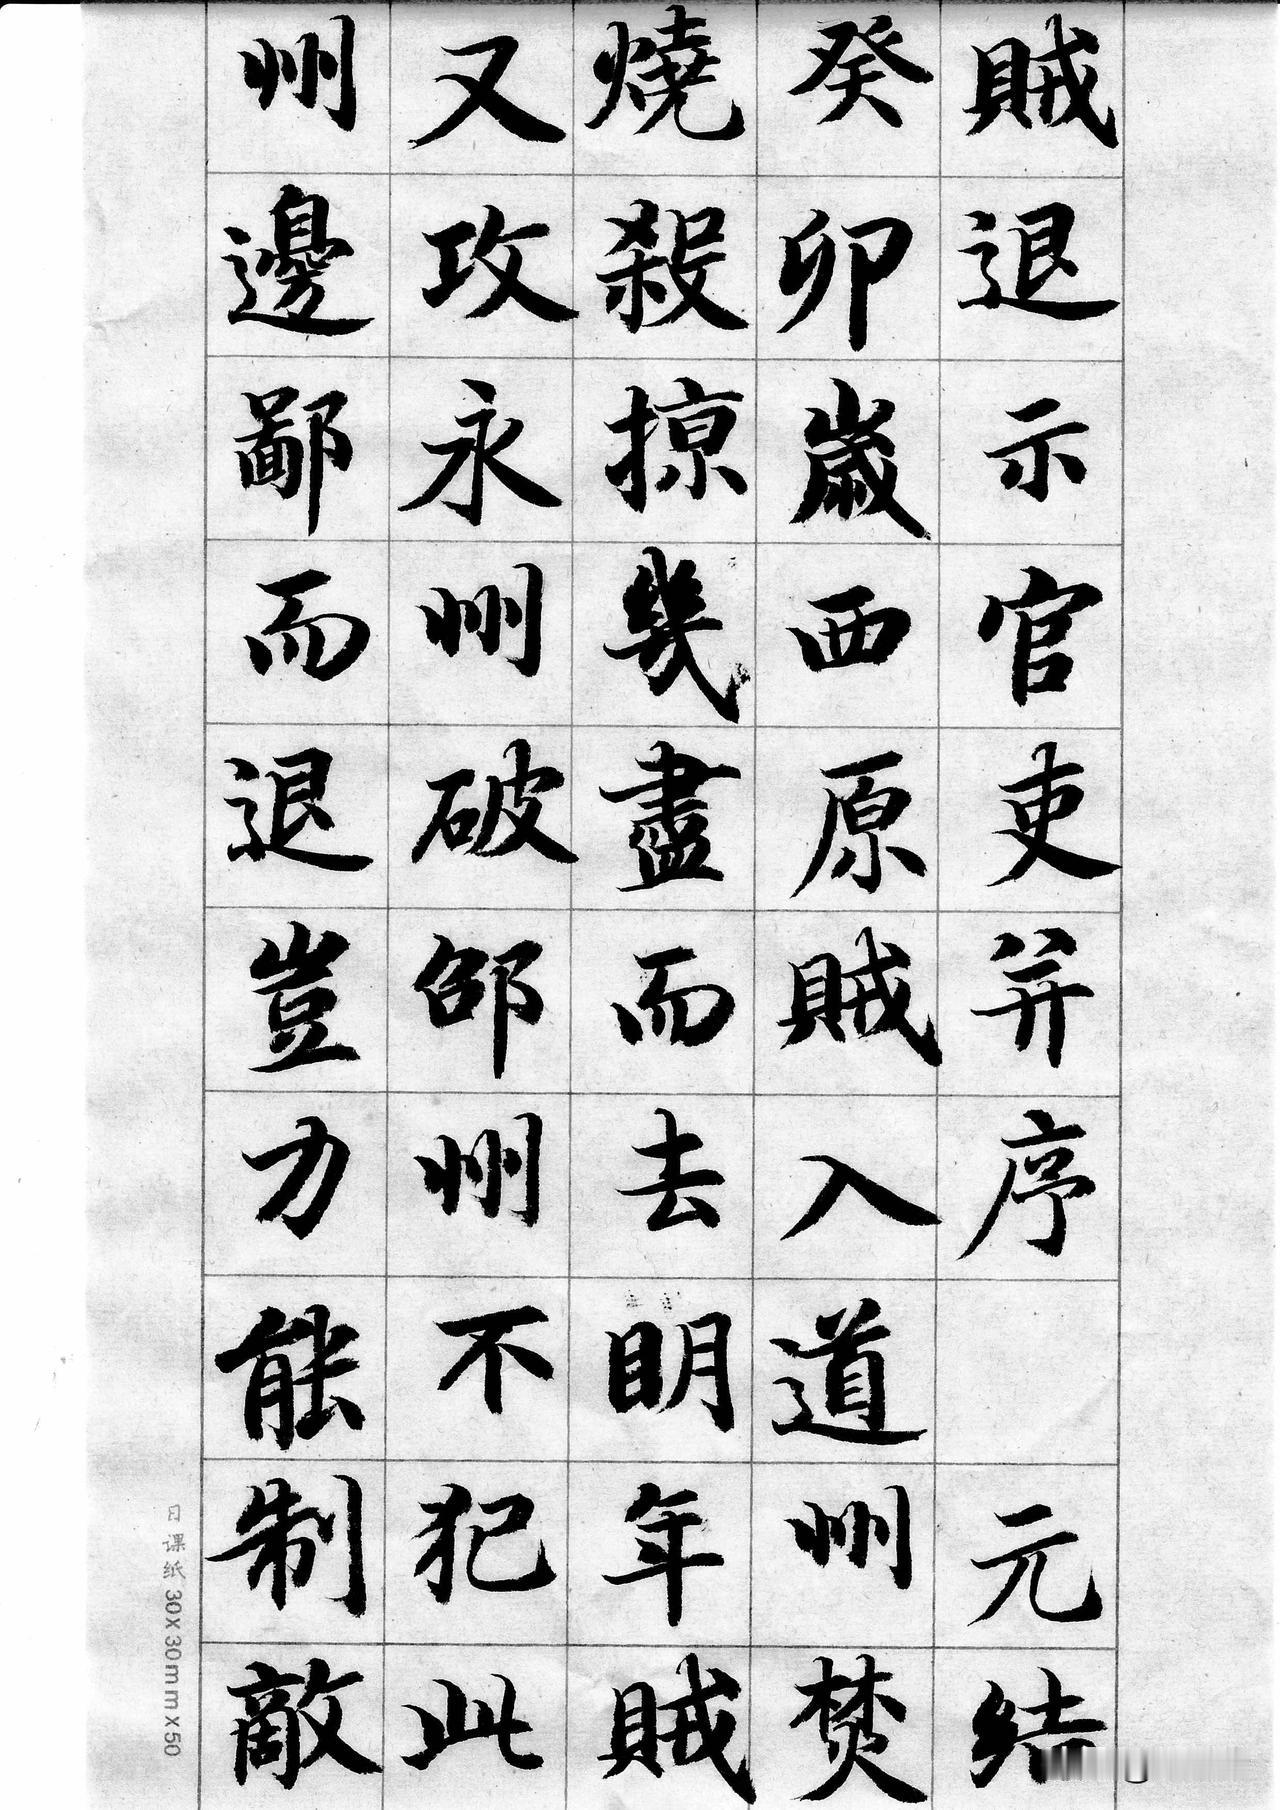 賊退示官吏并序 元結
癸卯歲西原賊入道州焚
燒殺掠幾盡而去明年賊
又攻永州破邵州不犯此
州邊鄙而退豈力能制敵
日课纸 30x30mmx50